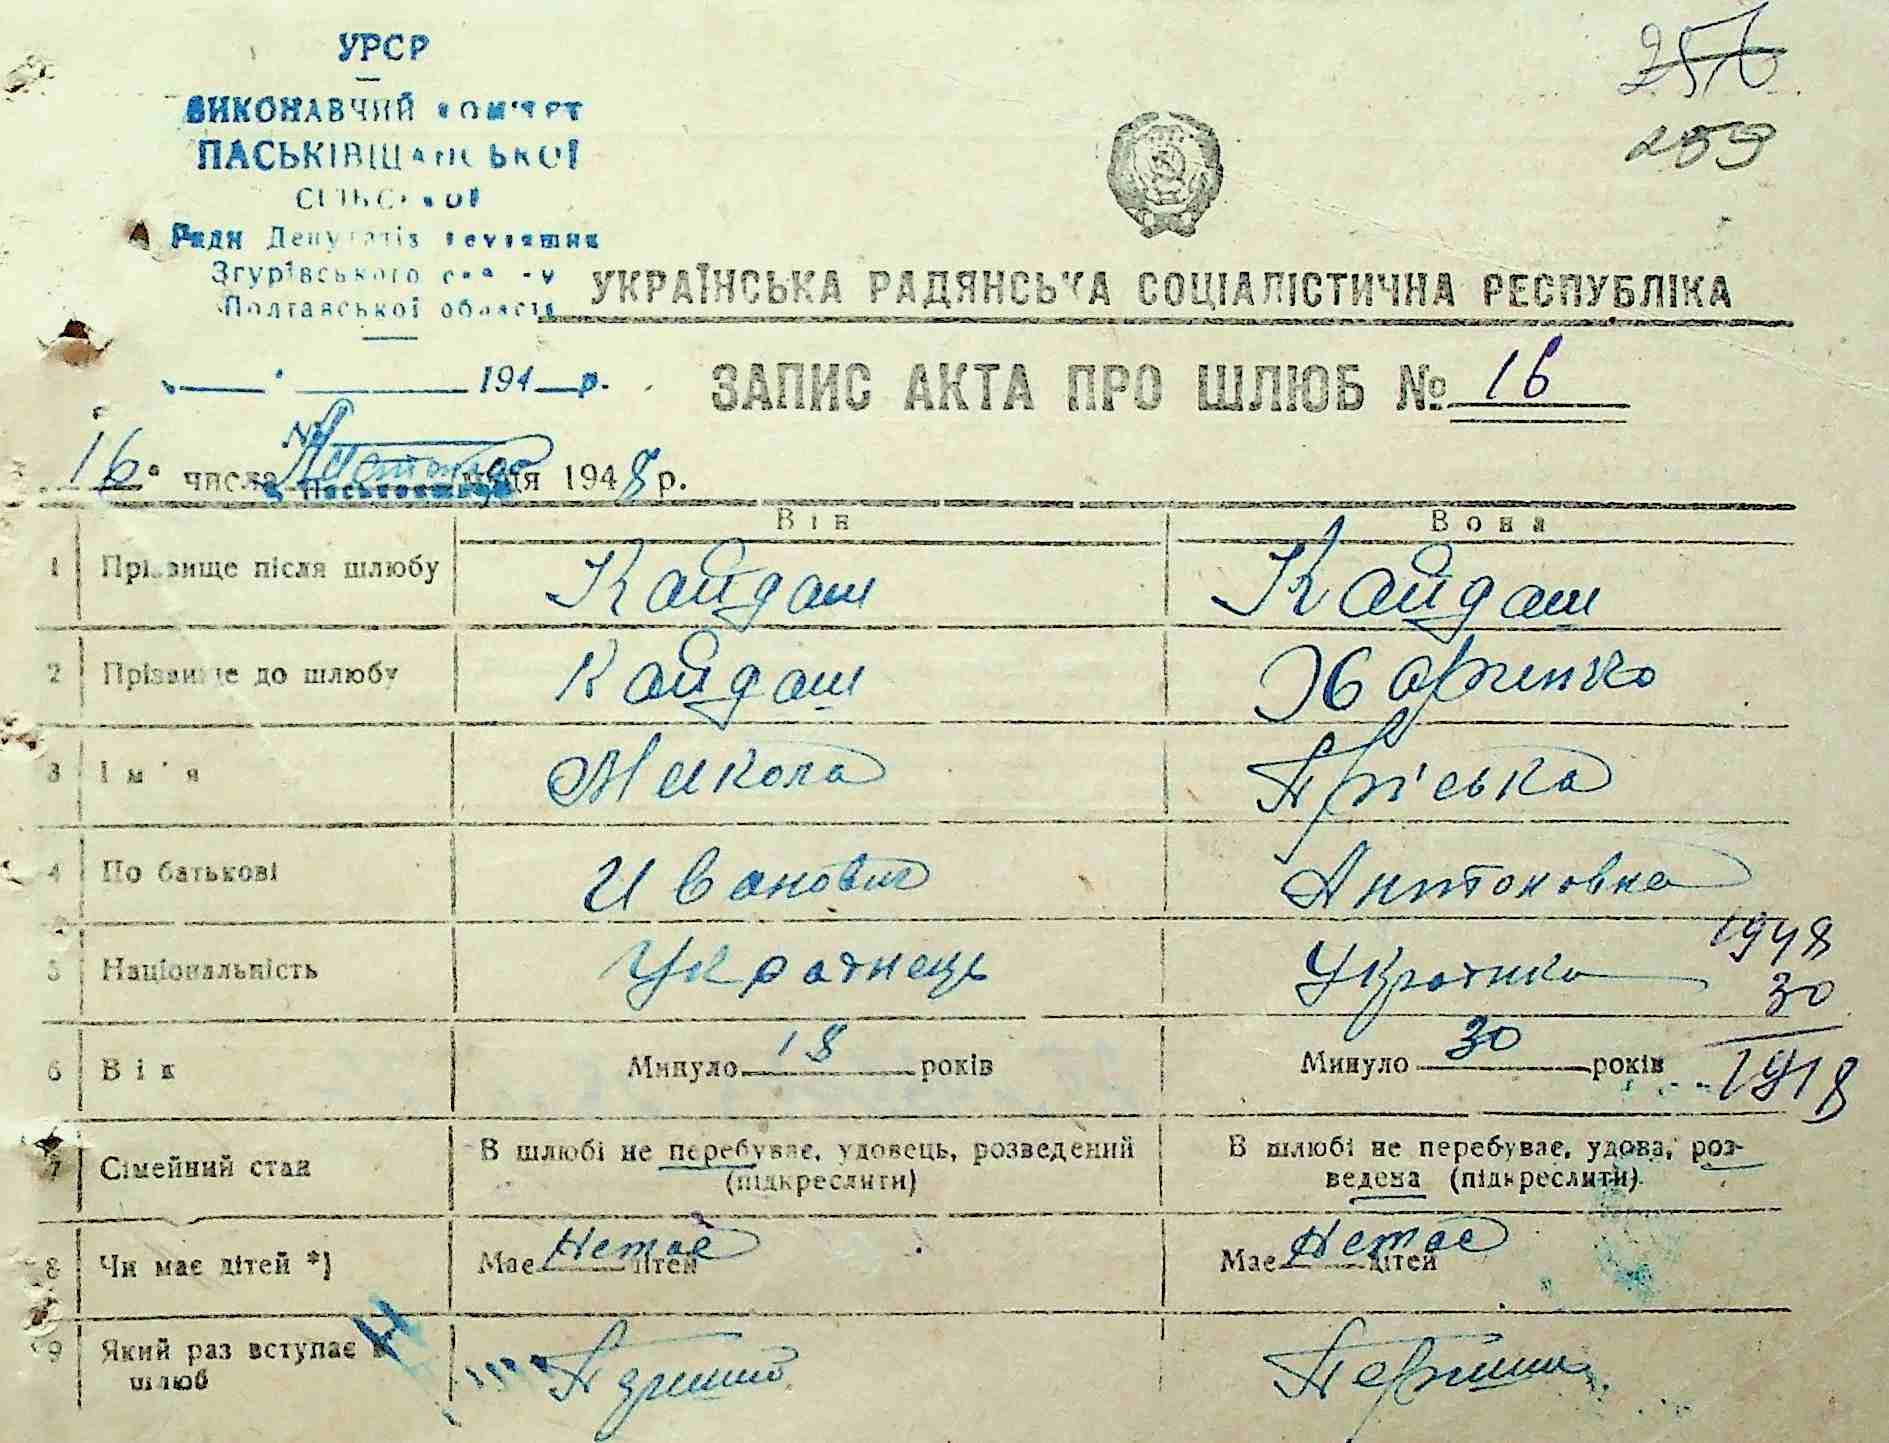 256
259
УРСР
ВИКОНАВЧИЙ КОМІТЕТ
ПАСЬКІВЩАНСЬКОЇ
СІЛЬСЬКОЇ
Ради Депутатів трудящих
Згурівського р-ну
Полтавської області
УКРАЇНСЬКА РАДЯНСЬКА СОЦІАЛІСТИЧНА РЕСПУБЛІКА
194 р.
ЗАПИС АКТА ПРО ШЛЮБ № 16
16 числа місяця 1948 р.
Він Вона
1 Прізвище після шлюбу Кайдаш Кайдаш
2 Прізвище до шлюбу Кайдаш Харченко
3 Ім'я Микола Пріська
4 По батькові Иванович Антоновна
5 Національність Українець Українка 1948
30
6 Вік Минуло 18 років Минуло 30 років 1918
7 Сімейний стан В шлюбі не перебуває, удовець, розведений (підкреслити) В шлюбі не перебуває, удова, роз-
ведена (підкреслити)
8 Чи має дітей *) Має Немає дітей Має Немає дітей
9 Який раз вступає в
шлюб Перший